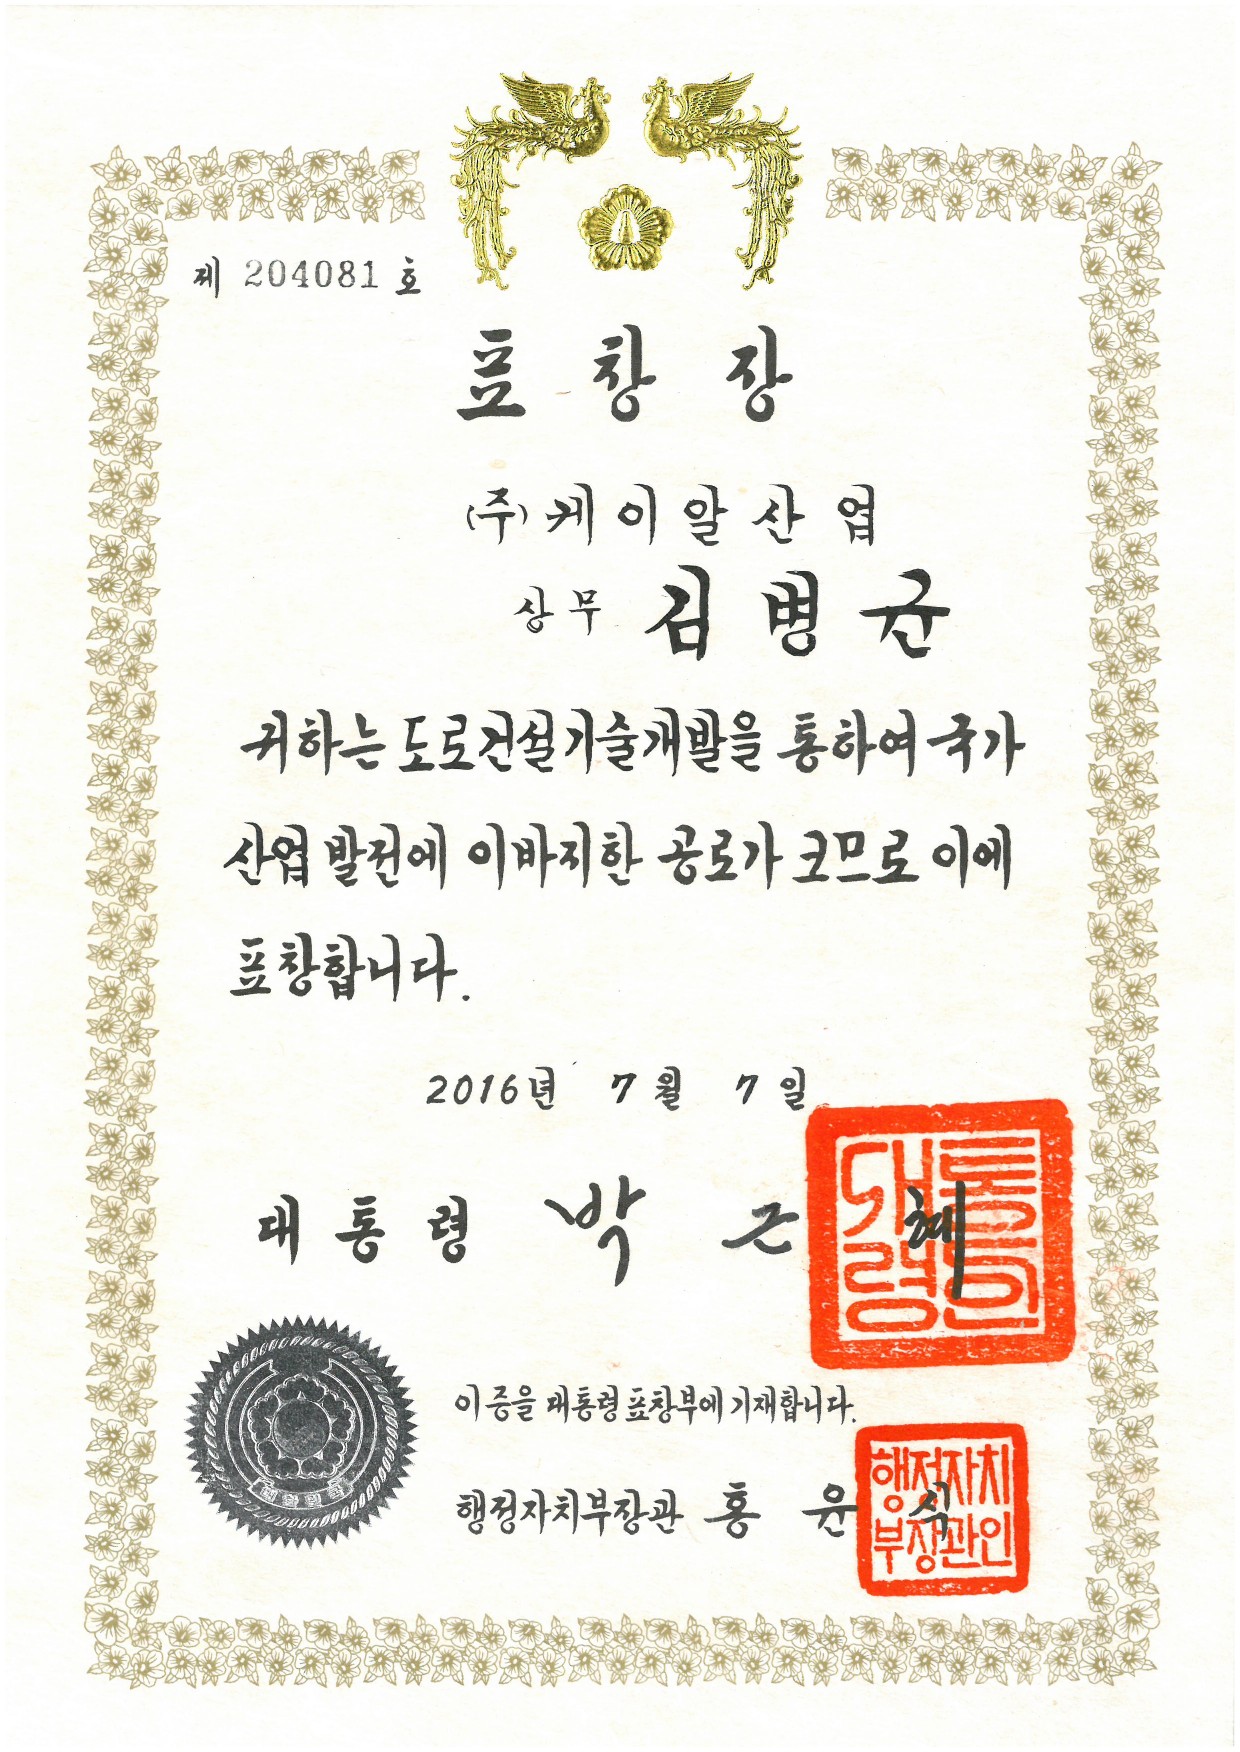 제 204081 호
표창장
(주)케이알산업
상무 김병균
귀하는 도로건설기술개발을 통하여 국가
산업발전에 이바지한 공로가 크므로 이에
표창합니다.
2016년 7월 7일
대통령 박근혜
대통령인
이 증을 대통령표창부에 기재합니다.
행정자치부장관 홍윤식
행정자치
부장관인